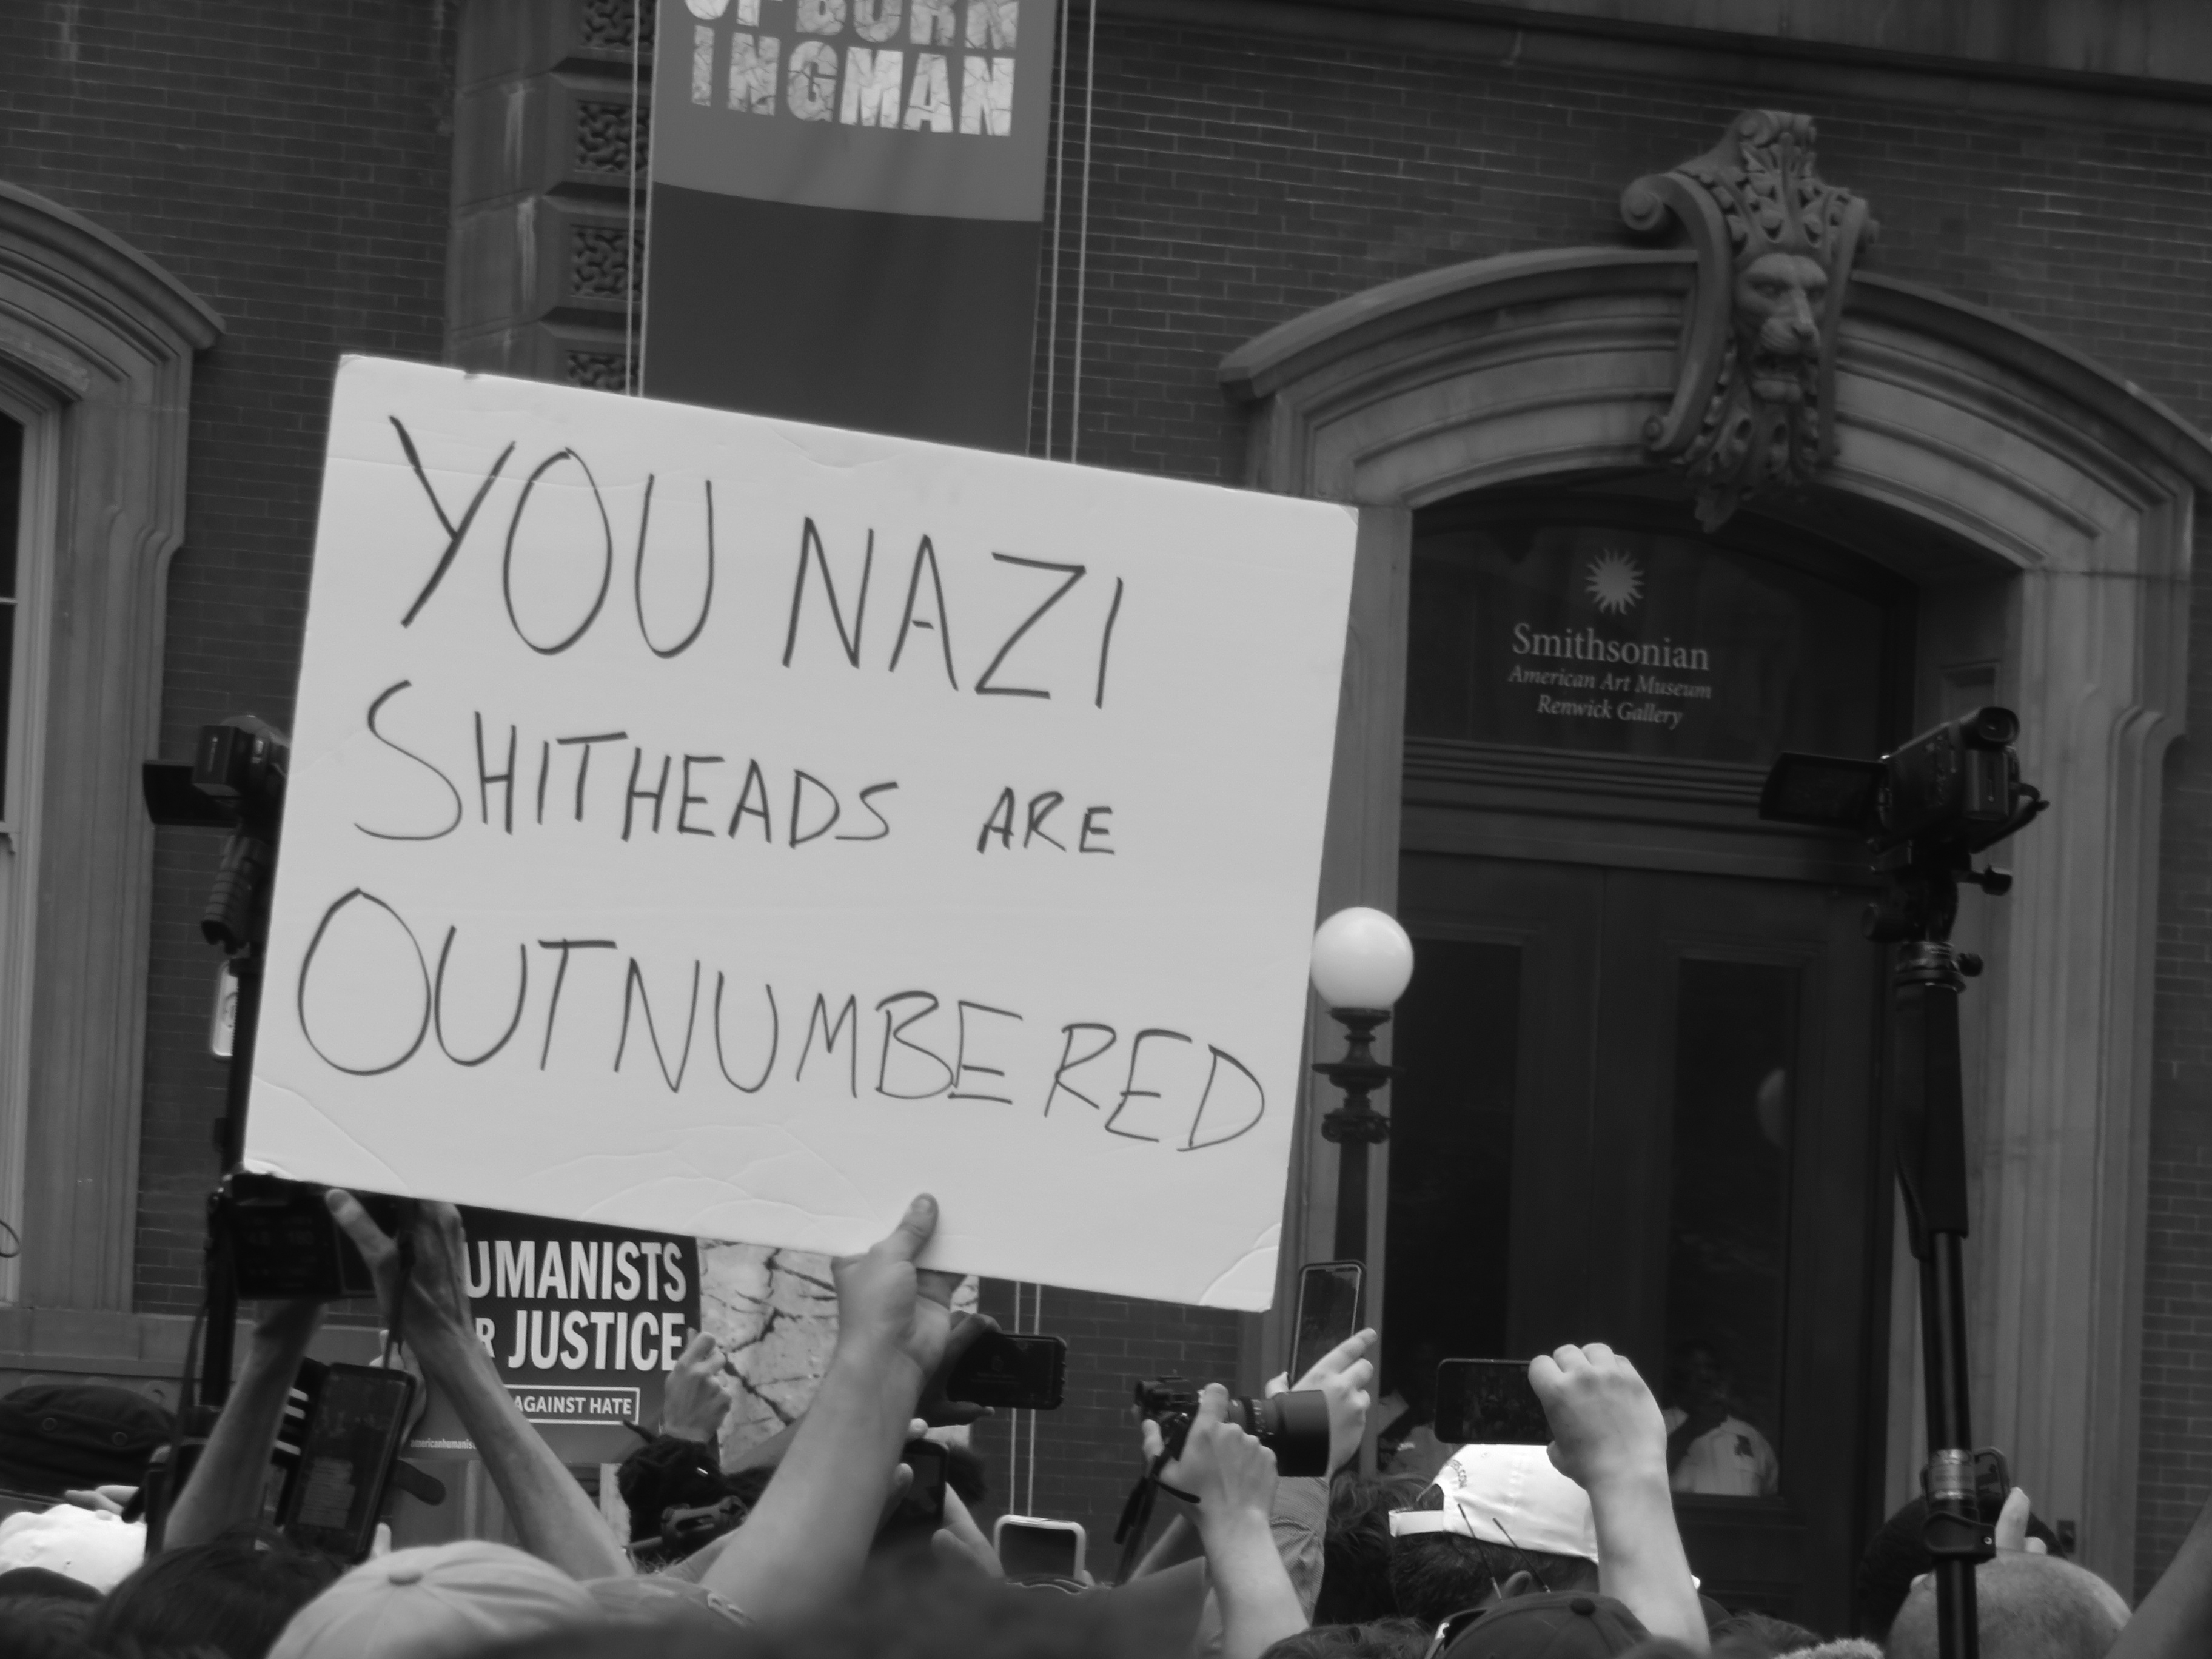 BURN
INGMAN
YOU NAZI
SHITHEADS ARE
OUTNUMBERED
Smithsonian
American Art Museum
Renwick Gallery
UMANISTS
R JUSTICE
AGAINST HATE
americanhumanis